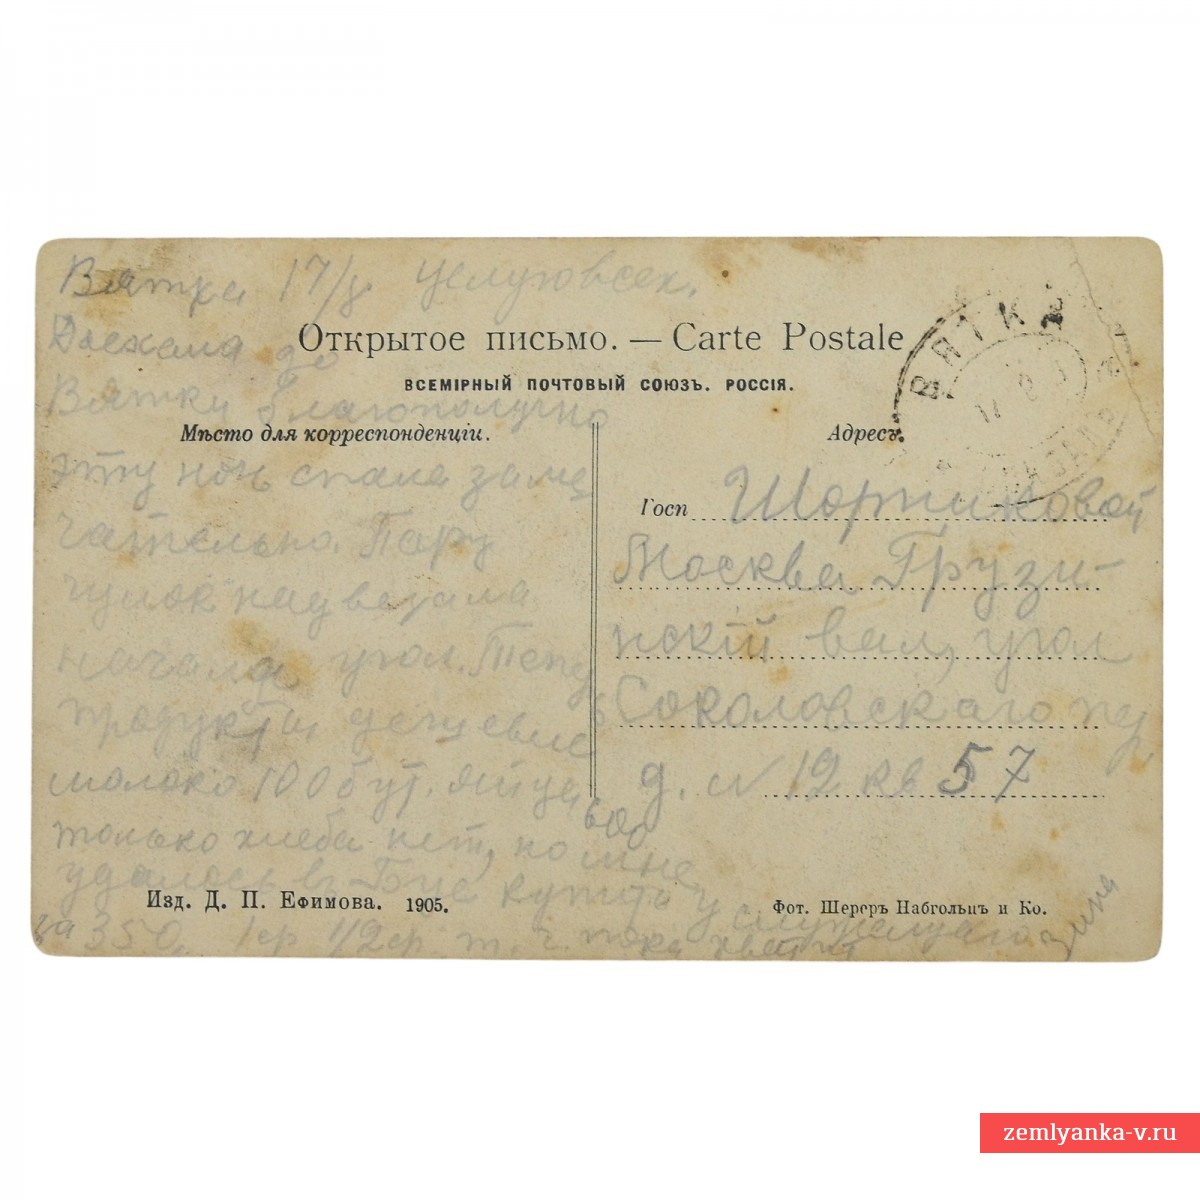 Вятка 17/8. Целую всех.
Доехала до
Вятки благополучно
Эту ночь спала заме
чательно. Пару
чулок надвезала
начала угол.
продукты дешевле
молоко 100 бут. яйца
600
только хлеба нет, но мне
удалось в купить у служащаго
за 350, 1 ср 1/2 ср т. ч. пока хватит
Зина
Открытое письмо. — Carte Postale
ВСЕМІРНЫЙ ПОЧТОВЫЙ СОЮЗЪ. РОССІЯ.
Мѣсто для корреспонденціи.
Адресъ.
ВЯТКА
ВОКЗАЛЪ
Госп Шортиковой
Москва Грузи-
нскій вал, угол
Соколовскаго пер
д. № 12 кв 57
Изд. Д. П. Ефимова. 1905.
Фот. Шереръ Набгольцъ и Ко.
zemlyanka-v.ru